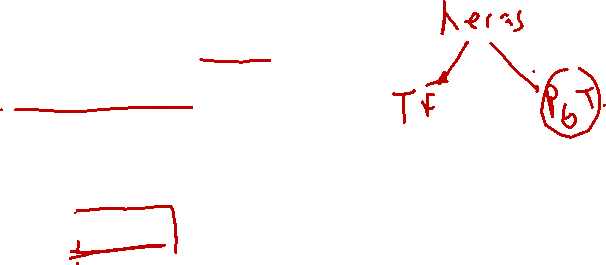 keras
TF PyT